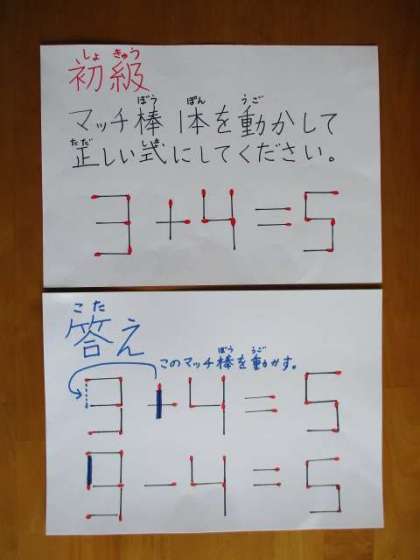 初級
しょ きゅう
マッチ棒1本を動かして
ぼう ぽん うご
正しい式にしてください。
ただ しき
3+4=5
答え
こた
このマッチ棒を動かす。
ぼう うご
9+4=5
9-4=5